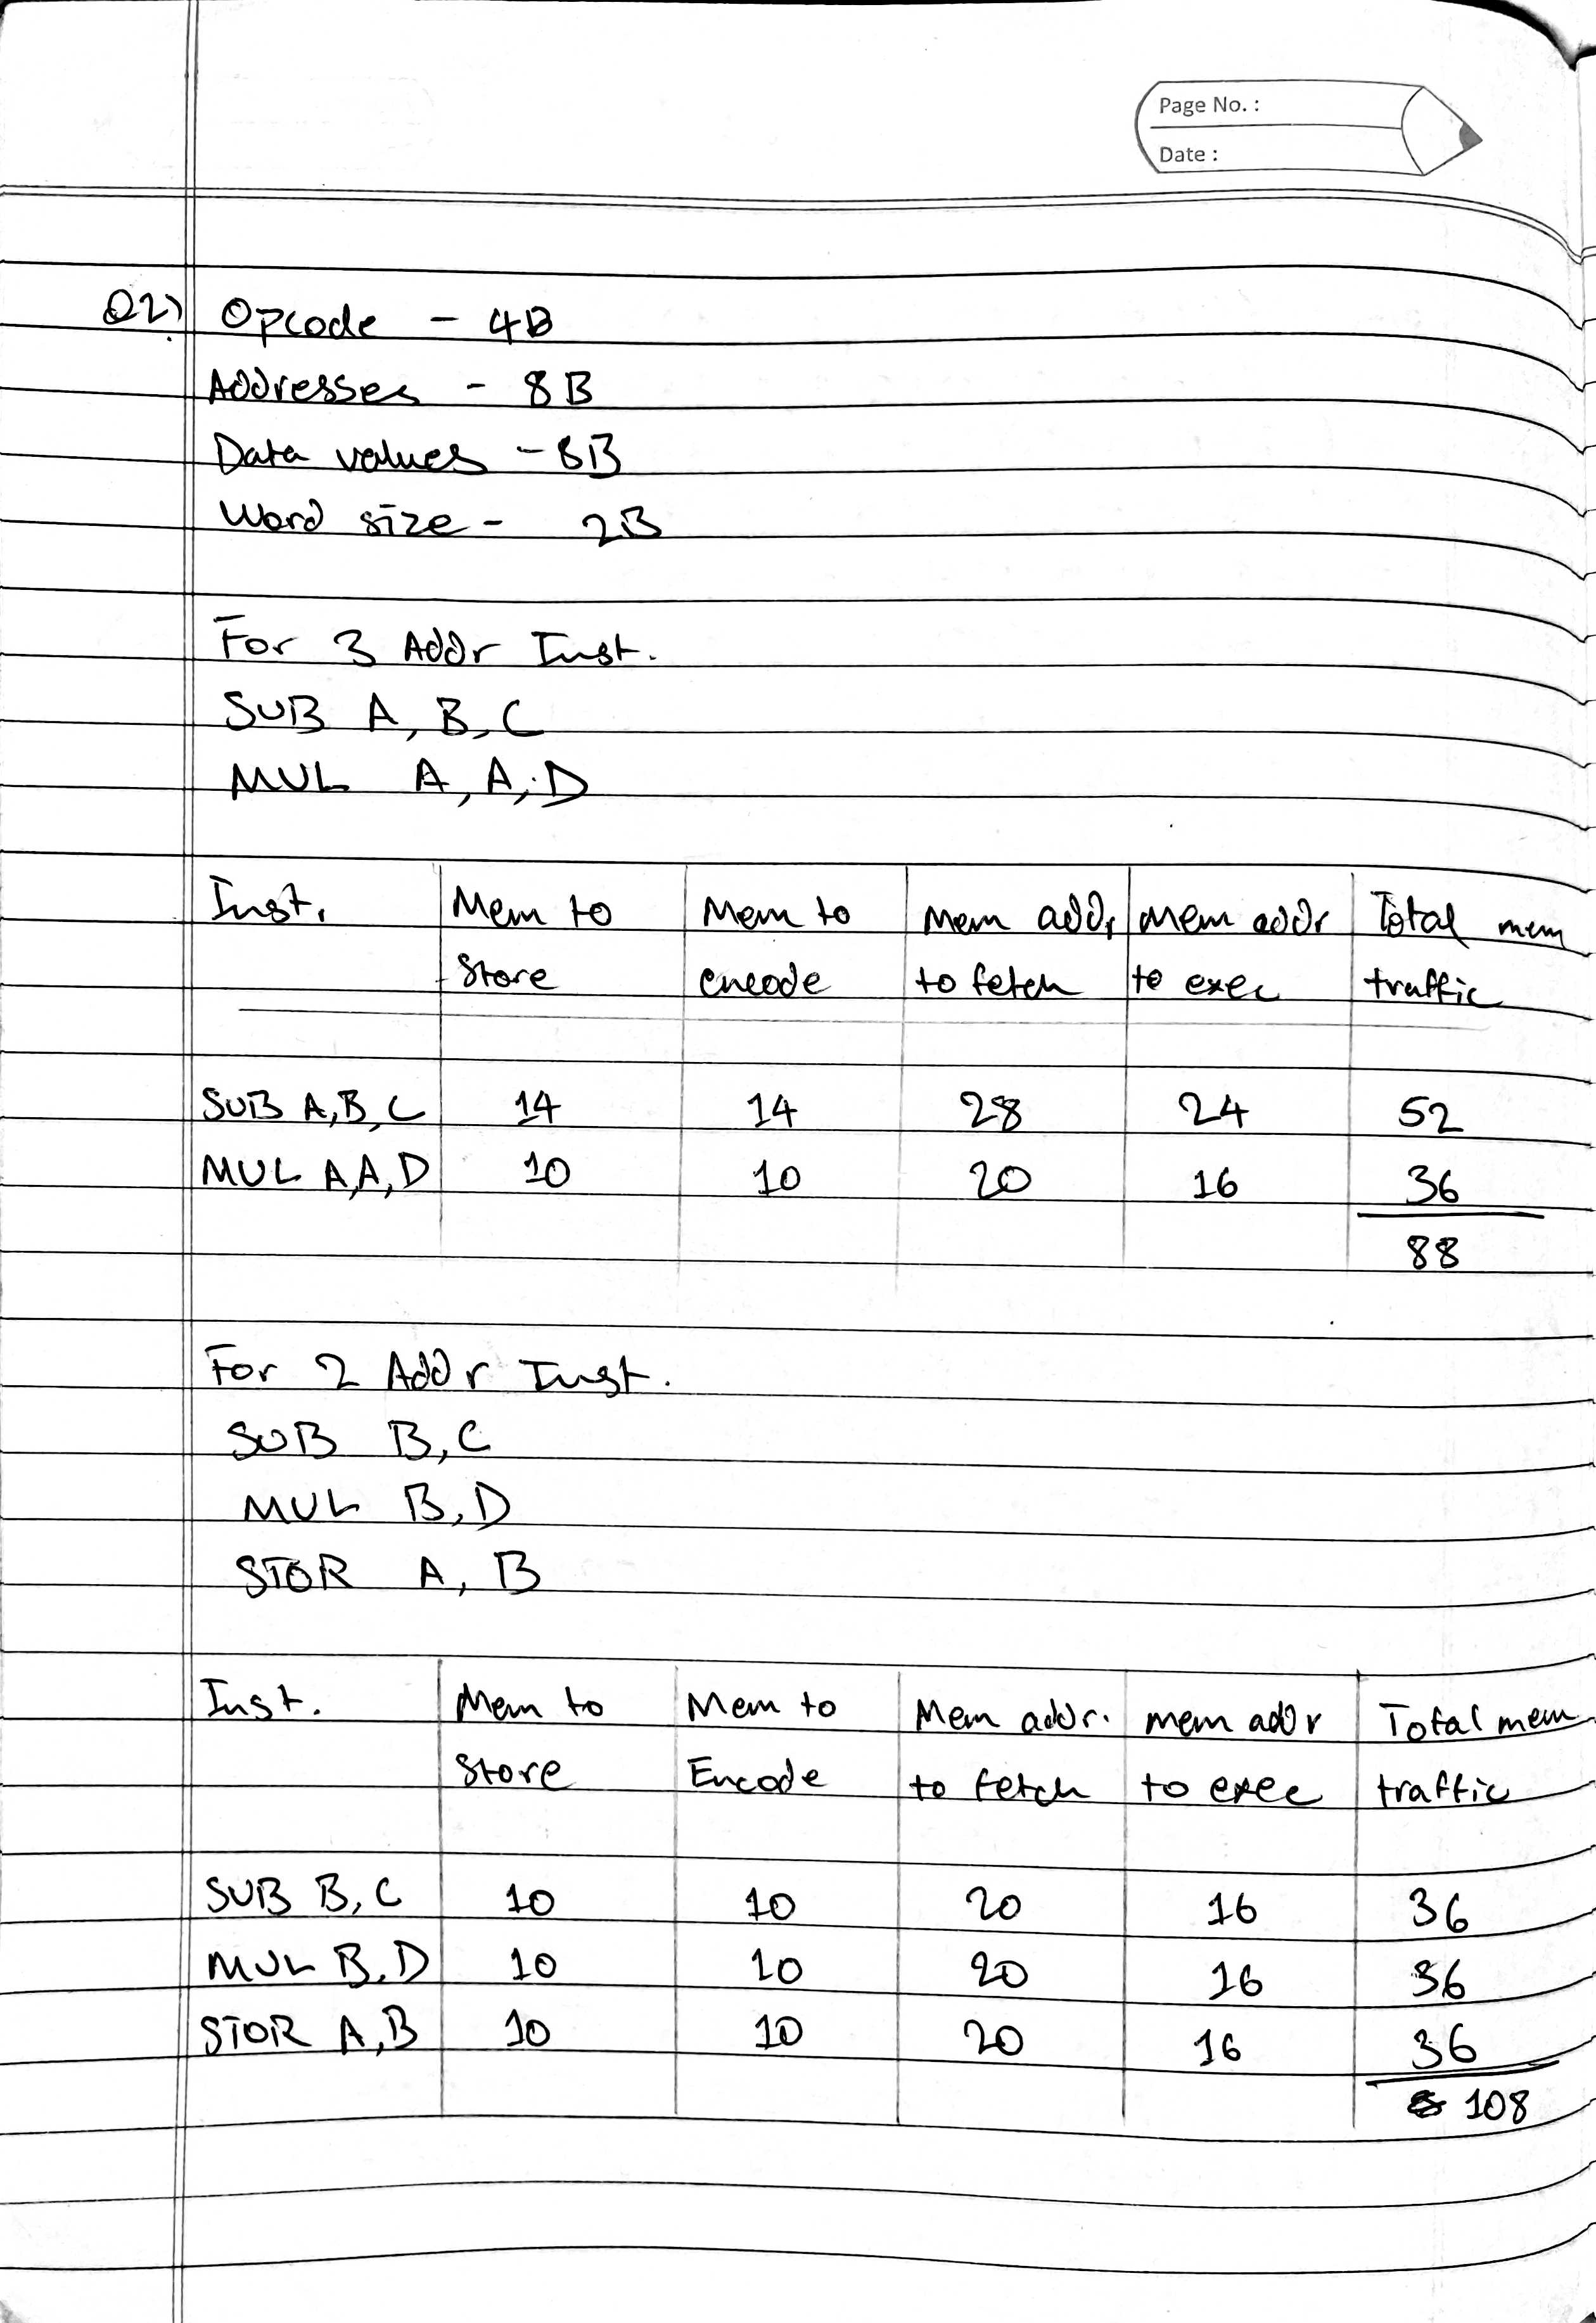 Page No. :
Date :
Q2) Opcode - 4B
Addresses - 8B
Data values - 8B
Word size - 2B
For 3 Addr Inst.
SUB A, B, C
MUL A, A, D
Inst. Mem to Mem to Mem addr Mem addr Total mem
Store encode to fetch to exec traffic
SUB A,B,C 14 14 28 24 52
MUL A,A,D 10 10 20 16 36
88
For 2 Addr Inst.
SUB B,C
MUL B,D
STOR A, B
Inst. Mem to Mem to Mem addr. mem addr Total mem
Store Encode to fetch to exec traffic
SUB B, C 10 10 20 16 36
MUL B,D 10 10 20 16 36
STOR A,B 10 10 20 16 36
108